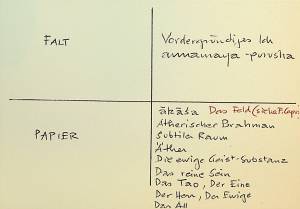 FALT
Vordergründiges Ich
annamaya - purusha
PAPIER
ākāśa Das Feld (siehe F. Capra
Ätherischer Brahman
Subtiler Raum
Äther
Die ewige Geist-Substanz
Das reine Sein
Das Tao, Der Eine
Der Herr, Der Ewige
Das All